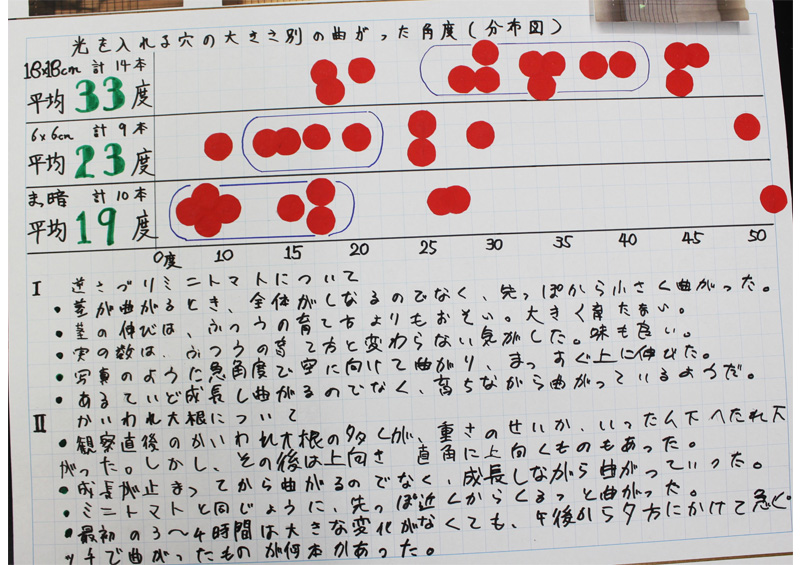 光を入れる穴の大きさ別の曲がった角度(分布図)
18×18cm 計14本
平均33度
6×6cm 計9本
平均23度
まっ暗 計10本
平均19度
0度 10 15 20 25 30 35 40 45 50
I 逆さづりミニトマトについて
・茎が曲がるとき、全体がしなるのでなく、先っぽから小さく曲がった。
・茎の伸びは、ふつうの育て方よりもおそい。大きく育たない。
・実の数は、ふつうの育て方と変わらない気がした。味も良い。
・写真のように急角度で空に向けて曲がり、まっすぐ上に伸びた。
・あるていど成長し曲がるのでなく、育ちながら曲がっているようだ。
II かいわれ大根について
・観察直後のかいわれ大根の多くが、重さのせいか、いったん下へたれ下
がった。しかし、その後は上向き 直角に上向くものもあった。
・成長が止まってから曲がるのでなく、成長しながら曲がっていった。
・ミニトマトと同じように、先っぽ近くからくるっと曲がった。
・最初の3〜4時間は大きな変化がなくても、午後から夕方にかけて急ピ
ッチで曲がったものが何本かあった。